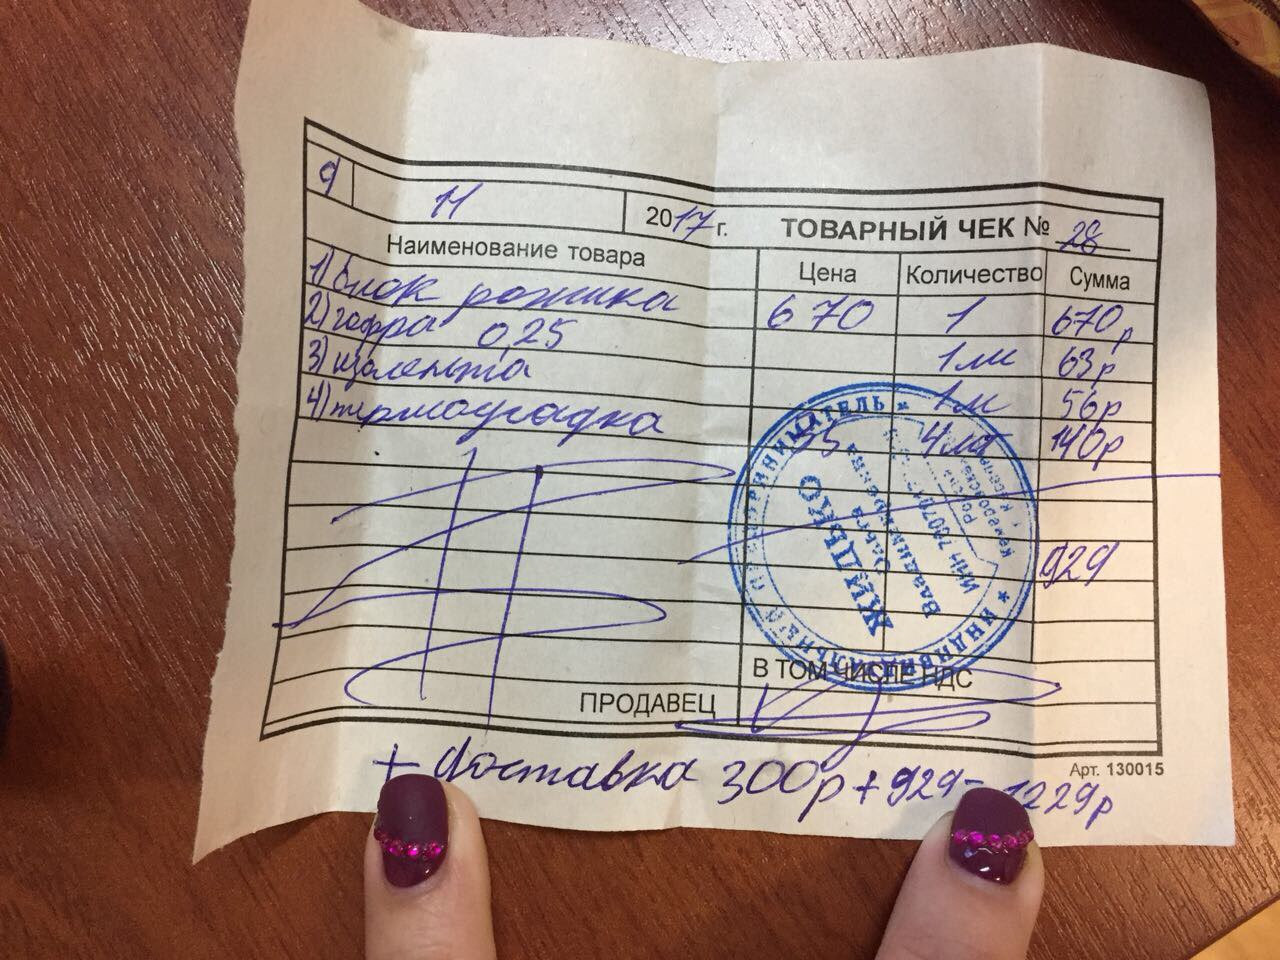 9 11 2017 г. ТОВАРНЫЙ ЧЕК № 28
Наименование товара Цена Количество Сумма
1) блок розжига 670 1 670р
2) гофра 0,25 1м 63р
3) изолента 1м 56р
4) термоусадка 35 4шт 140р
929
ИНДИВИДУАЛЬНЫЙ ПРЕДПРИНИМАТЕЛЬ
ЖИДЬКО
Ольга
Владимировна
ИНН
В ТОМ ЧИСЛЕ НДС
ПРОДАВЕЦ
Арт. 130015
+ доставка 300р + 929 = 1229р